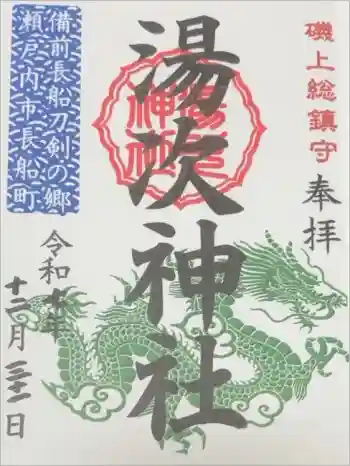 磯上総鎮守
奉拝
湯次神社
備前長船刀剣の郷
瀬戸内市長船町
令和 年
十二月三十一日